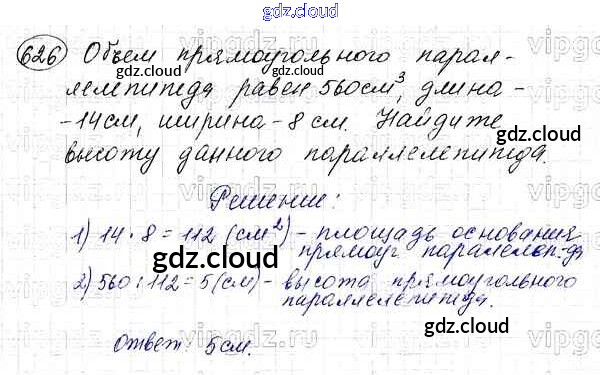 gdz.cloud
626 Объем прямоугольного парал-
лелепипеда равен 560 см³, длина -
- 14 см, ширина - 8 см. Найдите
высоту данного параллелепипеда.
Решение:
1) 14 · 8 = 112 (см²) - площадь основания
прямоуг. параллелеп-да
2) 560 : 112 = 5 (см) - высота прямоугольного
параллелепипеда.
Ответ: 5 см.
gdz.cloud
gdz.cloud
gdz.cloud
gdz.cloud
gdz.cloud
gdz.cloud
gdz.cloud